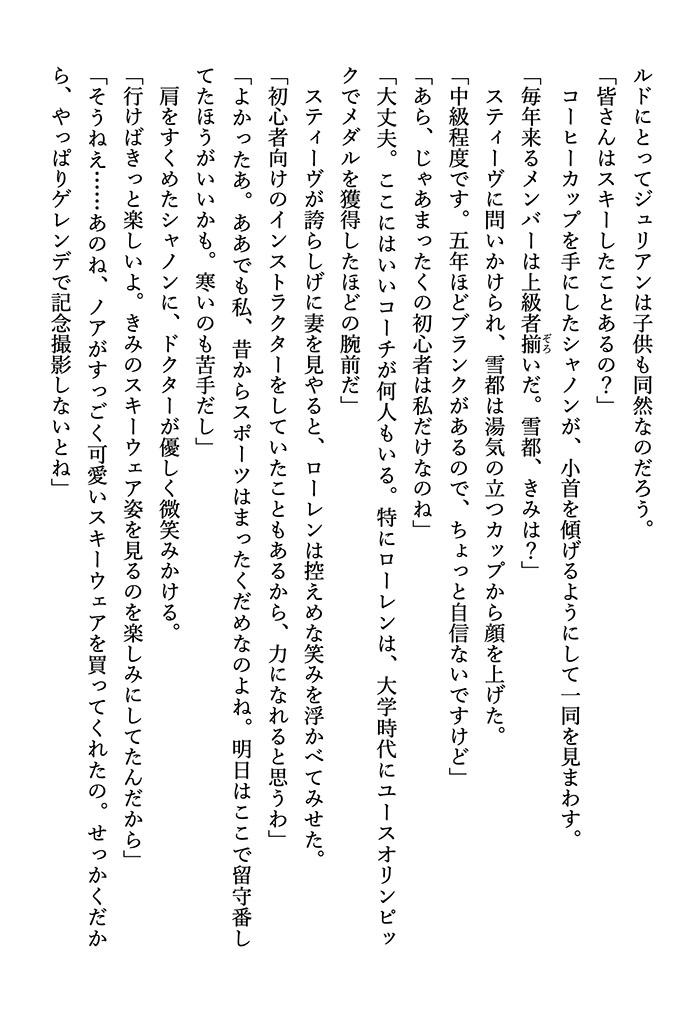 ルドにとってジュリアンは子供も同然なのだろう。
「皆さんはスキーしたことあるの？」
　コーヒーカップを手にしたシャノンが、小首を傾げるようにして一同を見まわす。
「毎年来るメンバーは上級者揃ぞろいだ。雪都、きみは？」
　スティーヴに問いかけられ、雪都は湯気の立つカップから顔を上げた。
「中級程度です。五年ほどブランクがあるので、ちょっと自信ないですけど」
「あら、じゃあまったくの初心者は私だけなのね」
「大丈夫。ここにはいいコーチが何人もいる。特にローレンは、大学時代にユースオリンピッ
クでメダルを獲得したほどの腕前だ」
　スティーヴが誇らしげに妻を見やると、ローレンは控えめな笑みを浮かべてみせた。
「初心者向けのインストラクターをしていたこともあるから、力になれると思うわ」
「よかったあ。ああでも私、昔からスポーツはまったくだめなのよね。明日はここで留守番し
てたほうがいいかも。寒いのも苦手だし」
　肩をすくめたシャノンに、ドクターが優しく微笑みかける。
「行けばきっと楽しいよ。きみのスキーウェア姿を見るのを楽しみにしてたんだから」
「そうねえ……あのね、ノアがすっごく可愛いスキーウェアを買ってくれたの。せっかくだか
ら、やっぱりゲレンデで記念撮影しないとね」